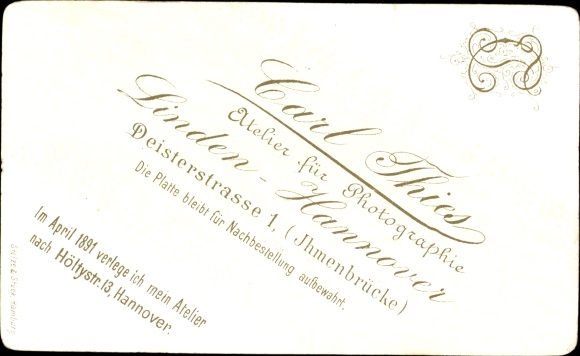 Carl Thies
Atelier für Photographie
Linden - Hannover
Deisterstrasse 1, (Jhmenbrücke)
Die Platte bleibt für Nachbestellung aufbewahrt.
Im April 1891 verlege ich mein Atelier
nach Höltystr. 13, Hannover.